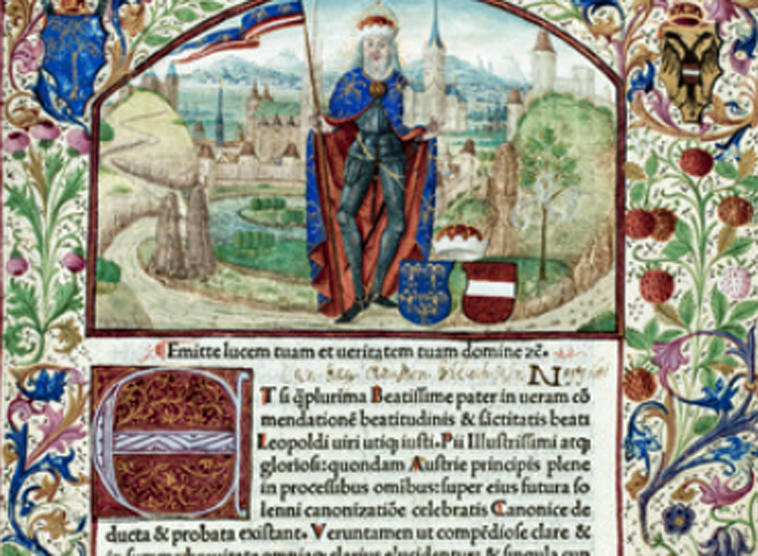 Emitte lucem tuam et ueritatem tuam domine ⁊c̄.
ET si q̄plurima Beatissime pater in ueram cō
mendationē beatitudinis & sāctitatis beati
Leopoldi uiri utiq; iusti. Pii Illustrissimi atq;
gloriosi: quondam Austrie principis plene
in processibus omībus: super eius futura so
lenni canonizatiōe celebratis Canonice de
ducta & probata existant. Veruntamen ut compēdiose clare &